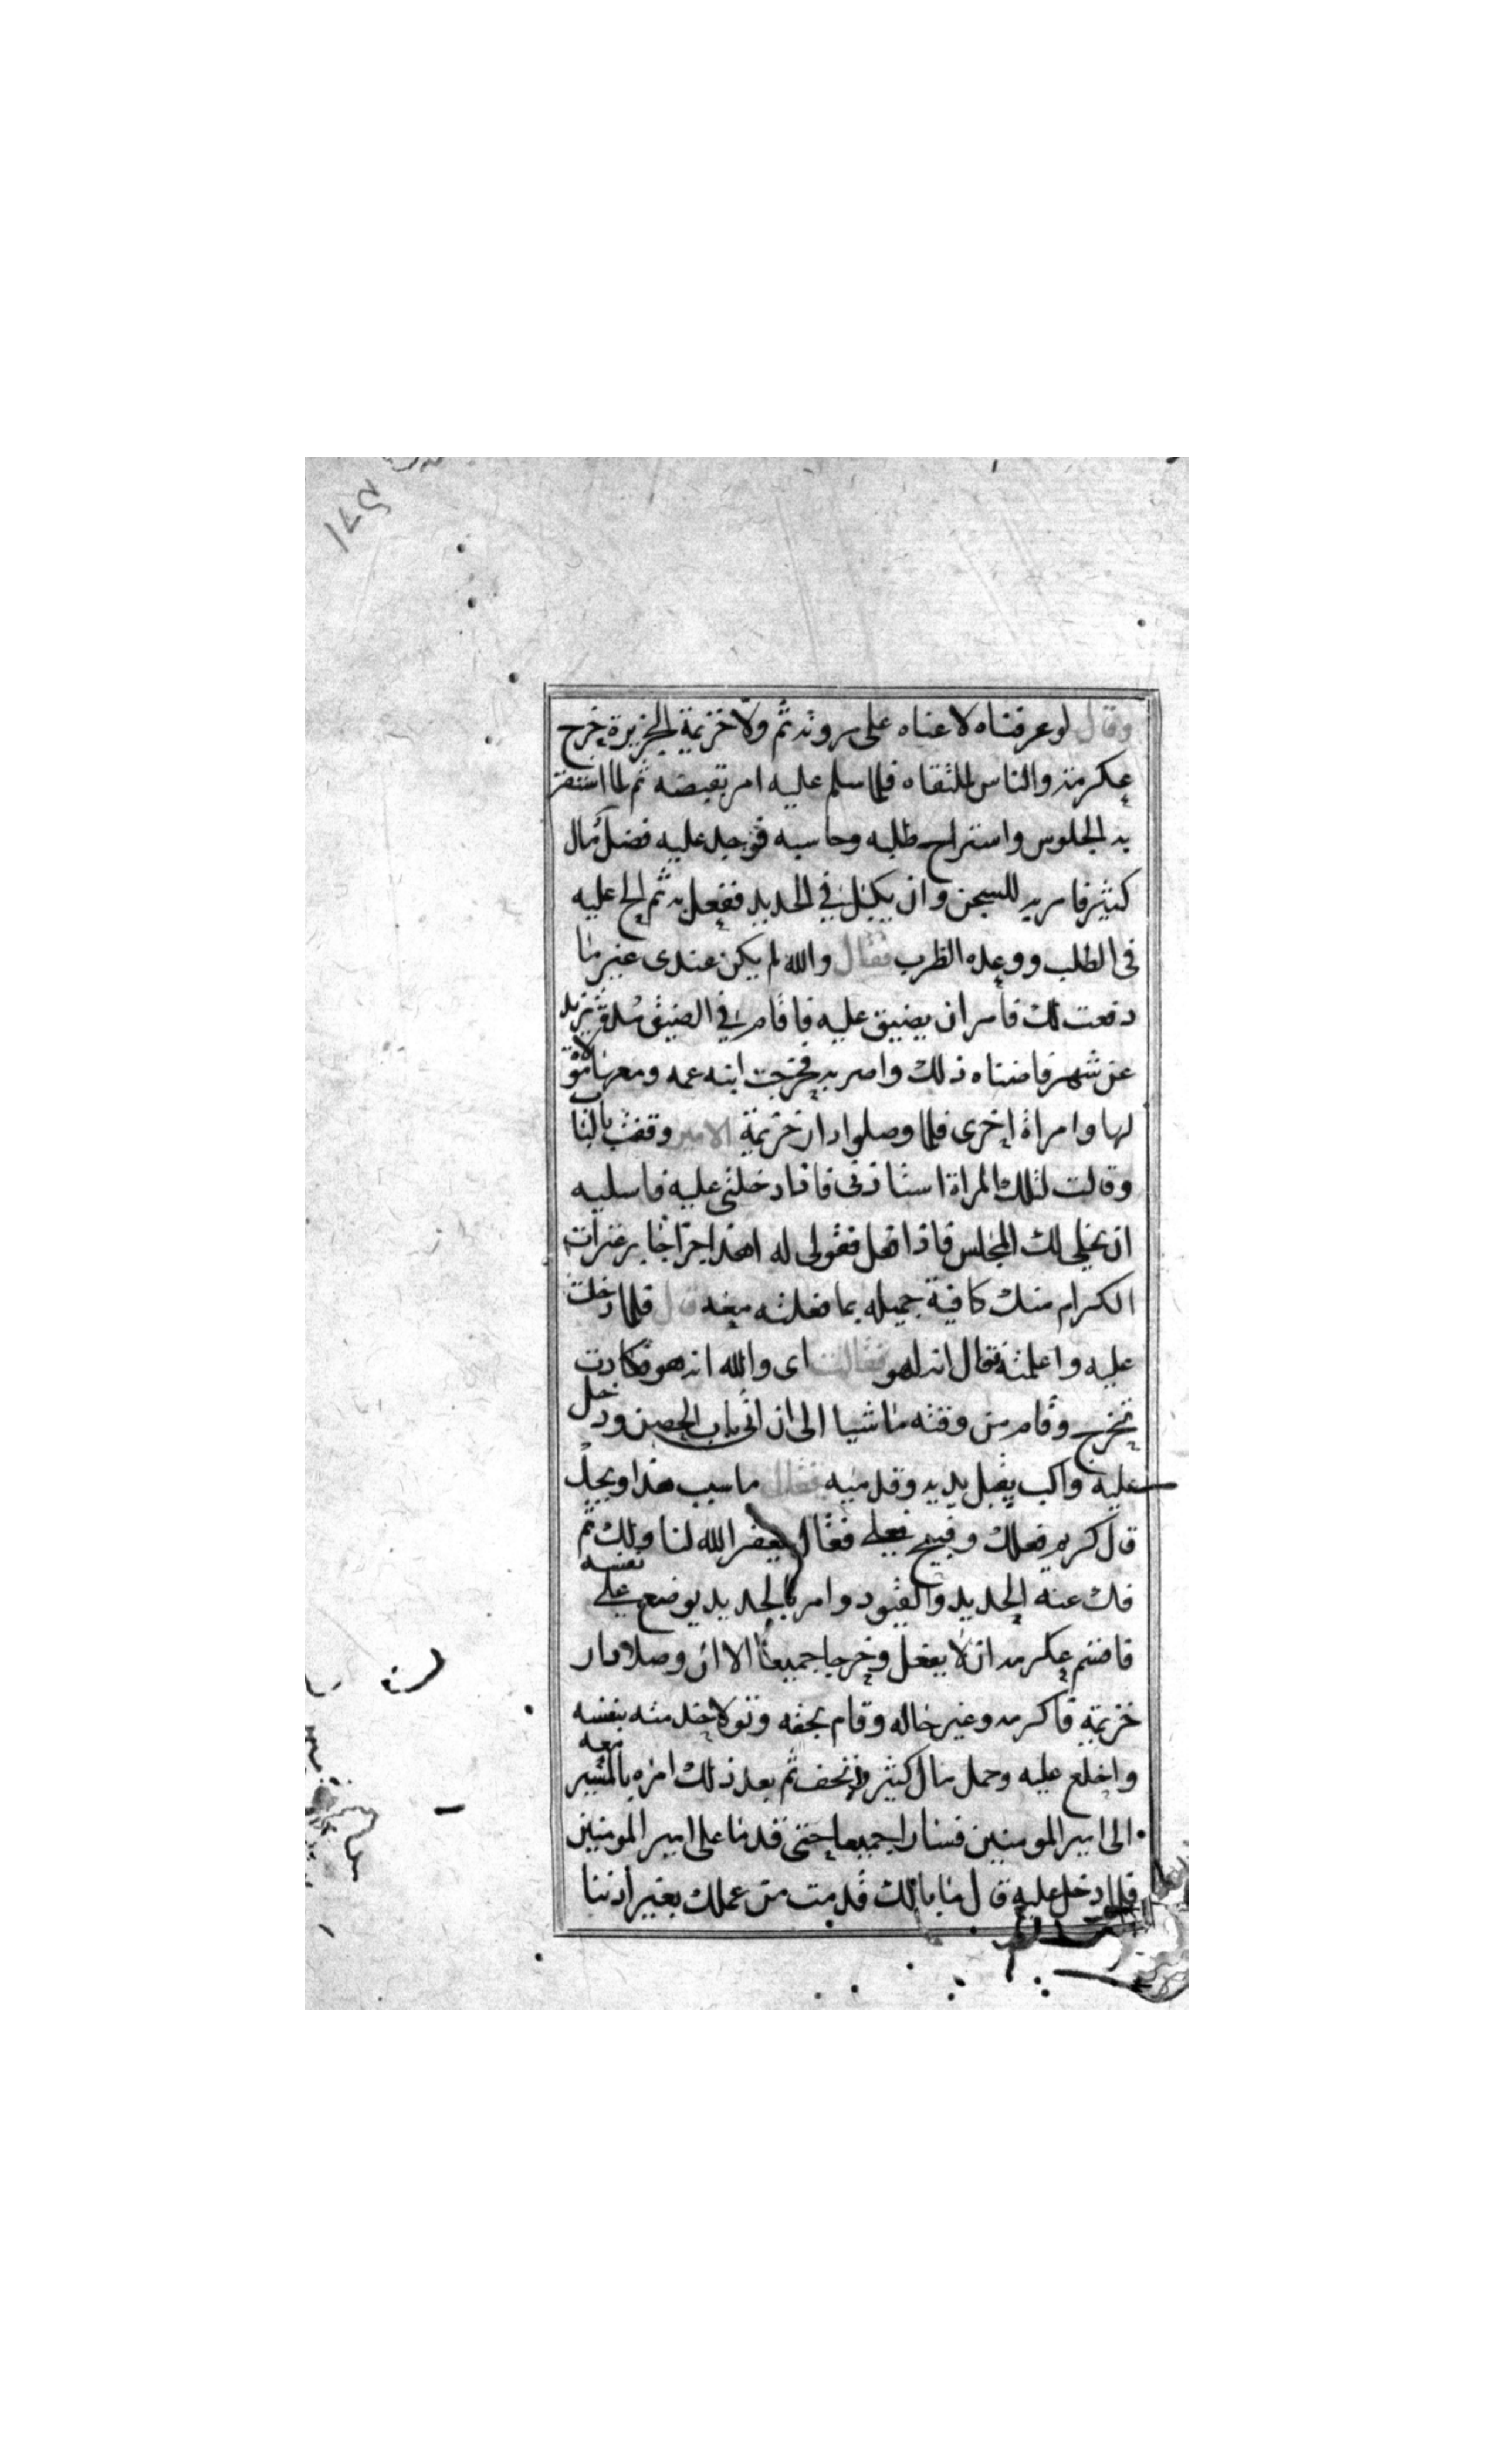 وقال لو عرفناه لاعناه على مروته ثم ولا خزيمة الجزيرة فخرج
عكرمه والناس للتقاه فلما سلم عليه امر بقبضه ثم لما استقر
به الجلوس واستراح طلبه وحاسبه فوجد عليه فضل مال
كثير فامر به للسجن وان يكبل في الحديد ففعل به ثم الح عليه
في الطلب ووعده الظرب فقال والله لم يكن عندى غير ما
دفعت لك فامر ان يضيق عليه فاقام في الضيق مدة تزيد
عن شهر فاضناه ذلك واضر به فخرجت ابنه عمه ومعها مولاة
لها وامراة اخرى فلما وصلوا دار خزيمة الامير وقفت بالباب
وقالت لتلك المراة استاذنى فاذا دخلتى عليه فاسليه
ان يخلى لك المجلس فاذا فعل فقولى له اهذا جزا جابر عثرات
الكرام منك كافية جميله بما فعلته معه قال فلما دخلت
عليه واعلمته فقال انه لهو فقالت اى والله انه هو فكادت
تخرج وقام من وقته ماشيا الى ان اتى باب الحصن ودخل
عليه واكب يقبل يديه وقدميه فقال ما سبب هذا ويحك
قال كريم فعلك وقبيح فعلى فقال يغفر الله لنا ولك ثم
فك عنه الحديد والقيود وامر بالحديد يوضع على نفسه
فاقتم عكرمه ان لا يفعل وخرجا جميعا الا ان وصلا دار
خزيمة فاكرمه وغير حاله وقام بحقه وتولا خدمته بنفسه
واخلع عليه وحمل مال كثير وتحف ثم بعد ذلك امره بالمسير معه
الى امير المومنين فسارا جميعا حتى قدما على امير المومنين
فلما دخل عليه قال ما بالك قدمت من عملك بغير اذننا